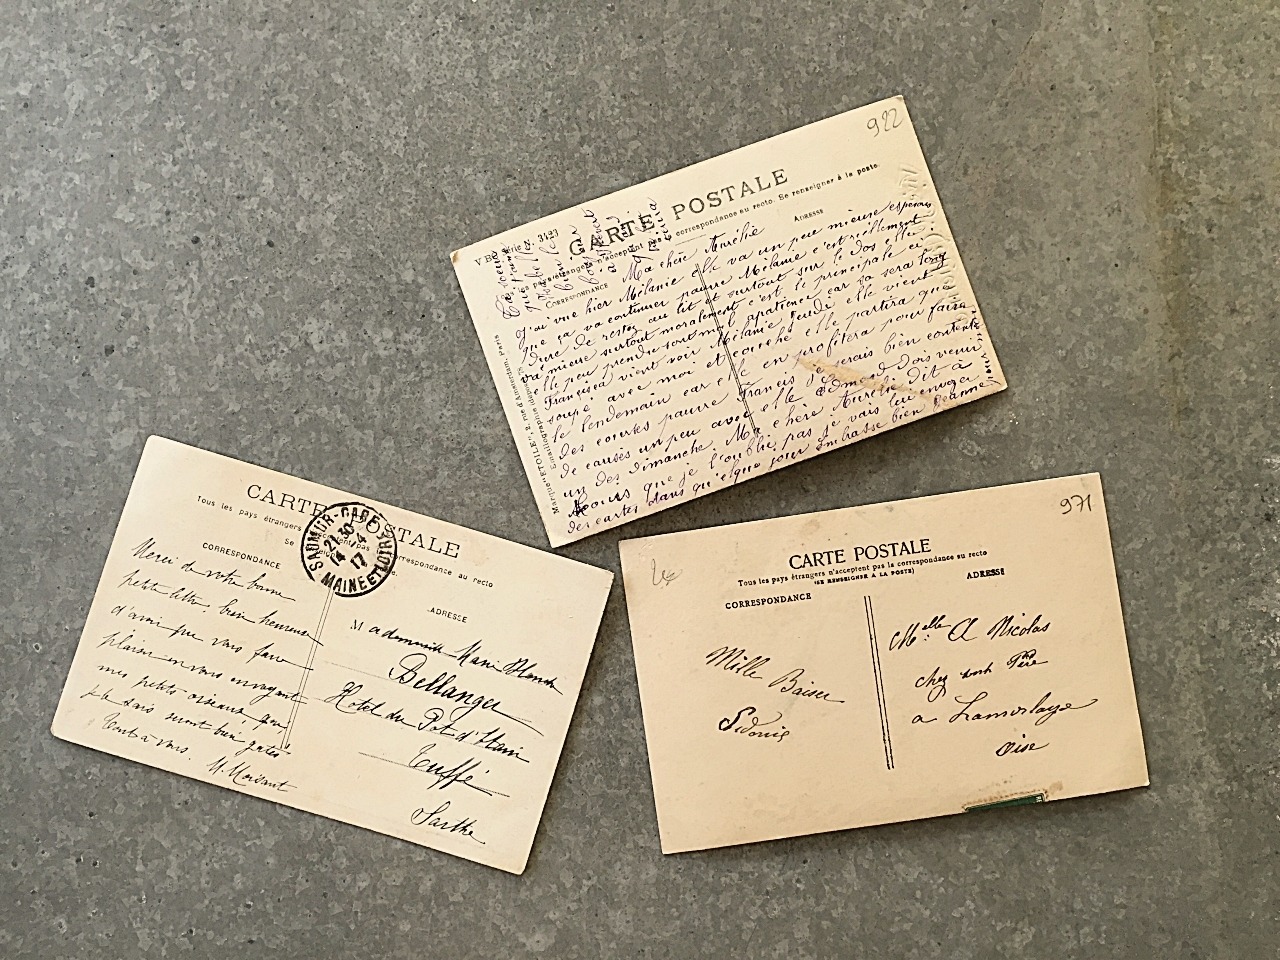 922
CARTE POSTALE
Tous les pays étrangers n'acceptent pas la correspondance au recto. Se renseigner à la poste.
CORRESPONDANCE
ADRESSE
Marque "ETOILE"
Ma chère Aurélie
J'ai vue hier Mélanie elle va un peu mieux esperons
que ça va continuer pauvre Mélanie c'est réellement
dure de rester au lit et surtout sur le dos elle
va mieux surtout moralement c'est le principale si
elle peu prendre son mal apatience car sa sera long
Francisca vient voir Mélanie jeudi elle vient
soupé avec moi et couché elle partira que
le lendemain car elle en profitera pour faire
des courses pauvre Francis je serais bien contente
de causés un peu avec elle Edmond dois venir
un des dimanche. Ma chère Aurélie dit à
que je l'oublie pas je vais lui envoyer
des cartes dans qu'elque jour Embrasse bien Jeanne
CARTE POSTALE
Tous les pays étrangers n'acceptent pas la correspondance au recto
CORRESPONDANCE
ADRESSE
SAUMUR-GARE
21 30
14 - 4
17
MAINE ET LOIRE
Merci de votre bonne
petite lettre. bien heureuse
d'ami que vous faire
plaisir en vous envoyant
mes petits oiseaux, qui,
je le sais seront bien gatés
Tout à vous.
M. Moisant
Mademoiselle Marie Blanche
Bellanger
Hotel du Pot d'Etain
Tuffé
Sarthe
971
CARTE POSTALE
Tous les pays étrangers n'acceptent pas la correspondance au recto
(SE RENSEIGNER A LA POSTE)
CORRESPONDANCE
ADRESSE
Mille Baiser
Sidonie
Melle: A Nicolas
chez son Père
a Lamorlaye
Oise